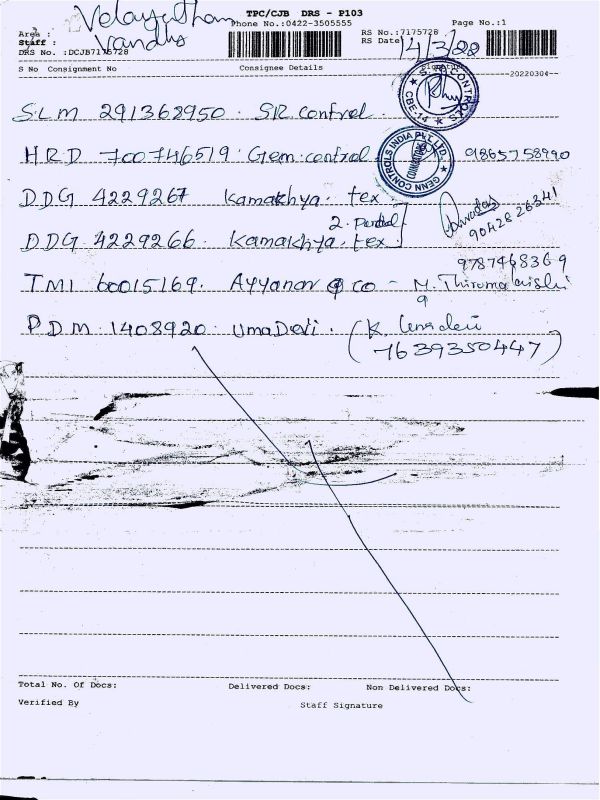 TPC/CJB DRS - P103
Phone No.:0422-3505555
Page No.:1
Area :
Velayutham
Staff :
DRS No. :DCJB7175728
RS No.:7175728
RS Date
14/3/22
S No Consignment No Consignee Details
20220304
SLM 291368950. SR Control.
S.R. CONTROLS CBE-14
HRD 700746519. Gem control 9865758990
GENN CONTROLS INDIA PVT. LTD. COIMBATORE
DDG 4229267 Kamakhya. tex
2.
9042826341
DDG 4229266. Kamakhya. tex
9787468369
TMI 60015169. Ayyanar & co - M.
PDM 1408920. Uma Devi. (K.
7639350447)
Total No. Of Docs: Delivered Docs: Non Delivered Docs:
Verified By Staff Signature